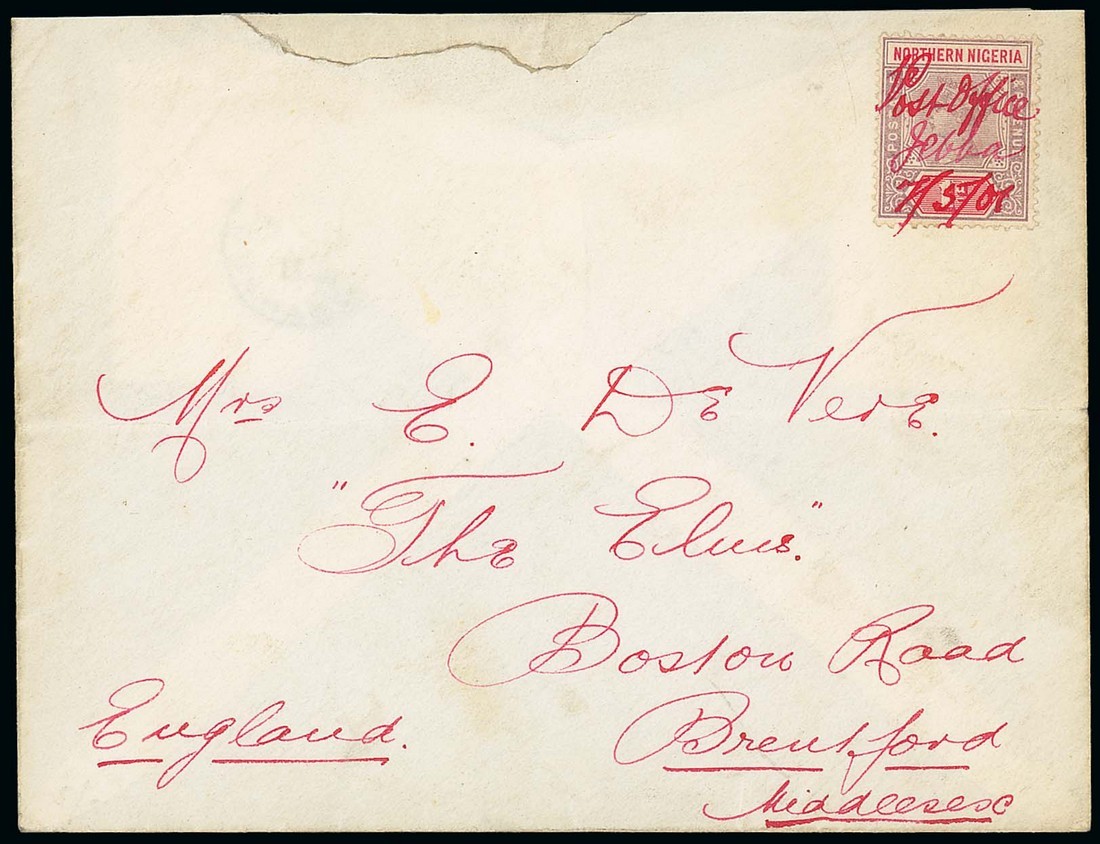 NORTHERN NIGERIA
Post Office
Jebba
7/5/01
Mrs E. De Vere.
"The Elms."
Boston Road
Brentford
Middlesex
England.